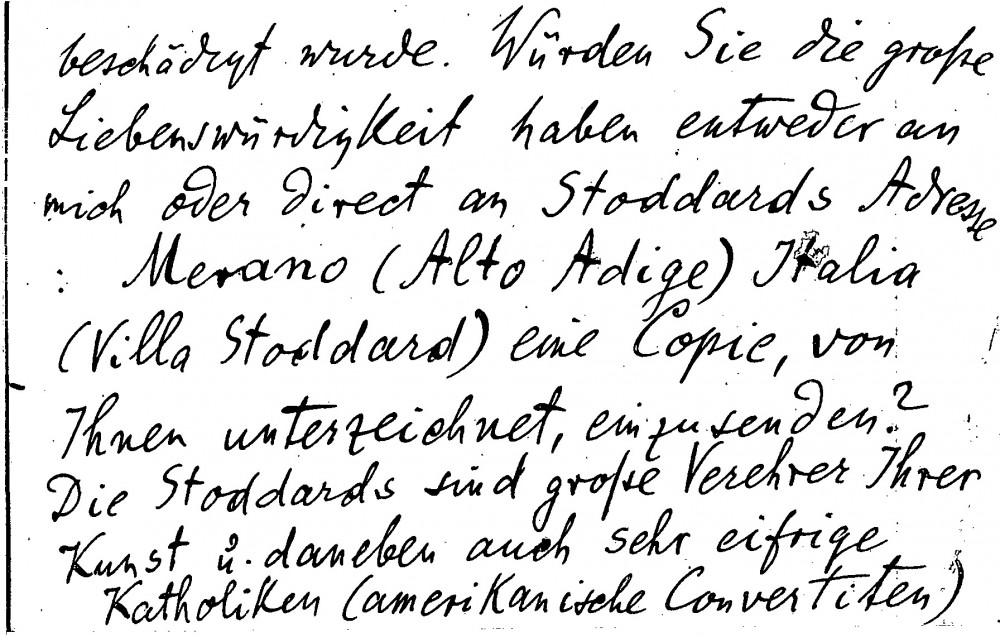 beschädigt wurde. Würden Sie die große
Liebenswürdigkeit haben entweder an
mich oder direct an Stoddards Adresse
: Merano (Alto Adige) Italia
(Villa Stoddard) eine Copie, von
Ihnen unterzeichnet, einzusenden?
Die Stoddards sind große Verehrer Ihrer
Kunst u. daneben auch sehr eifrige
Katholiken (amerikanische Convertiten)